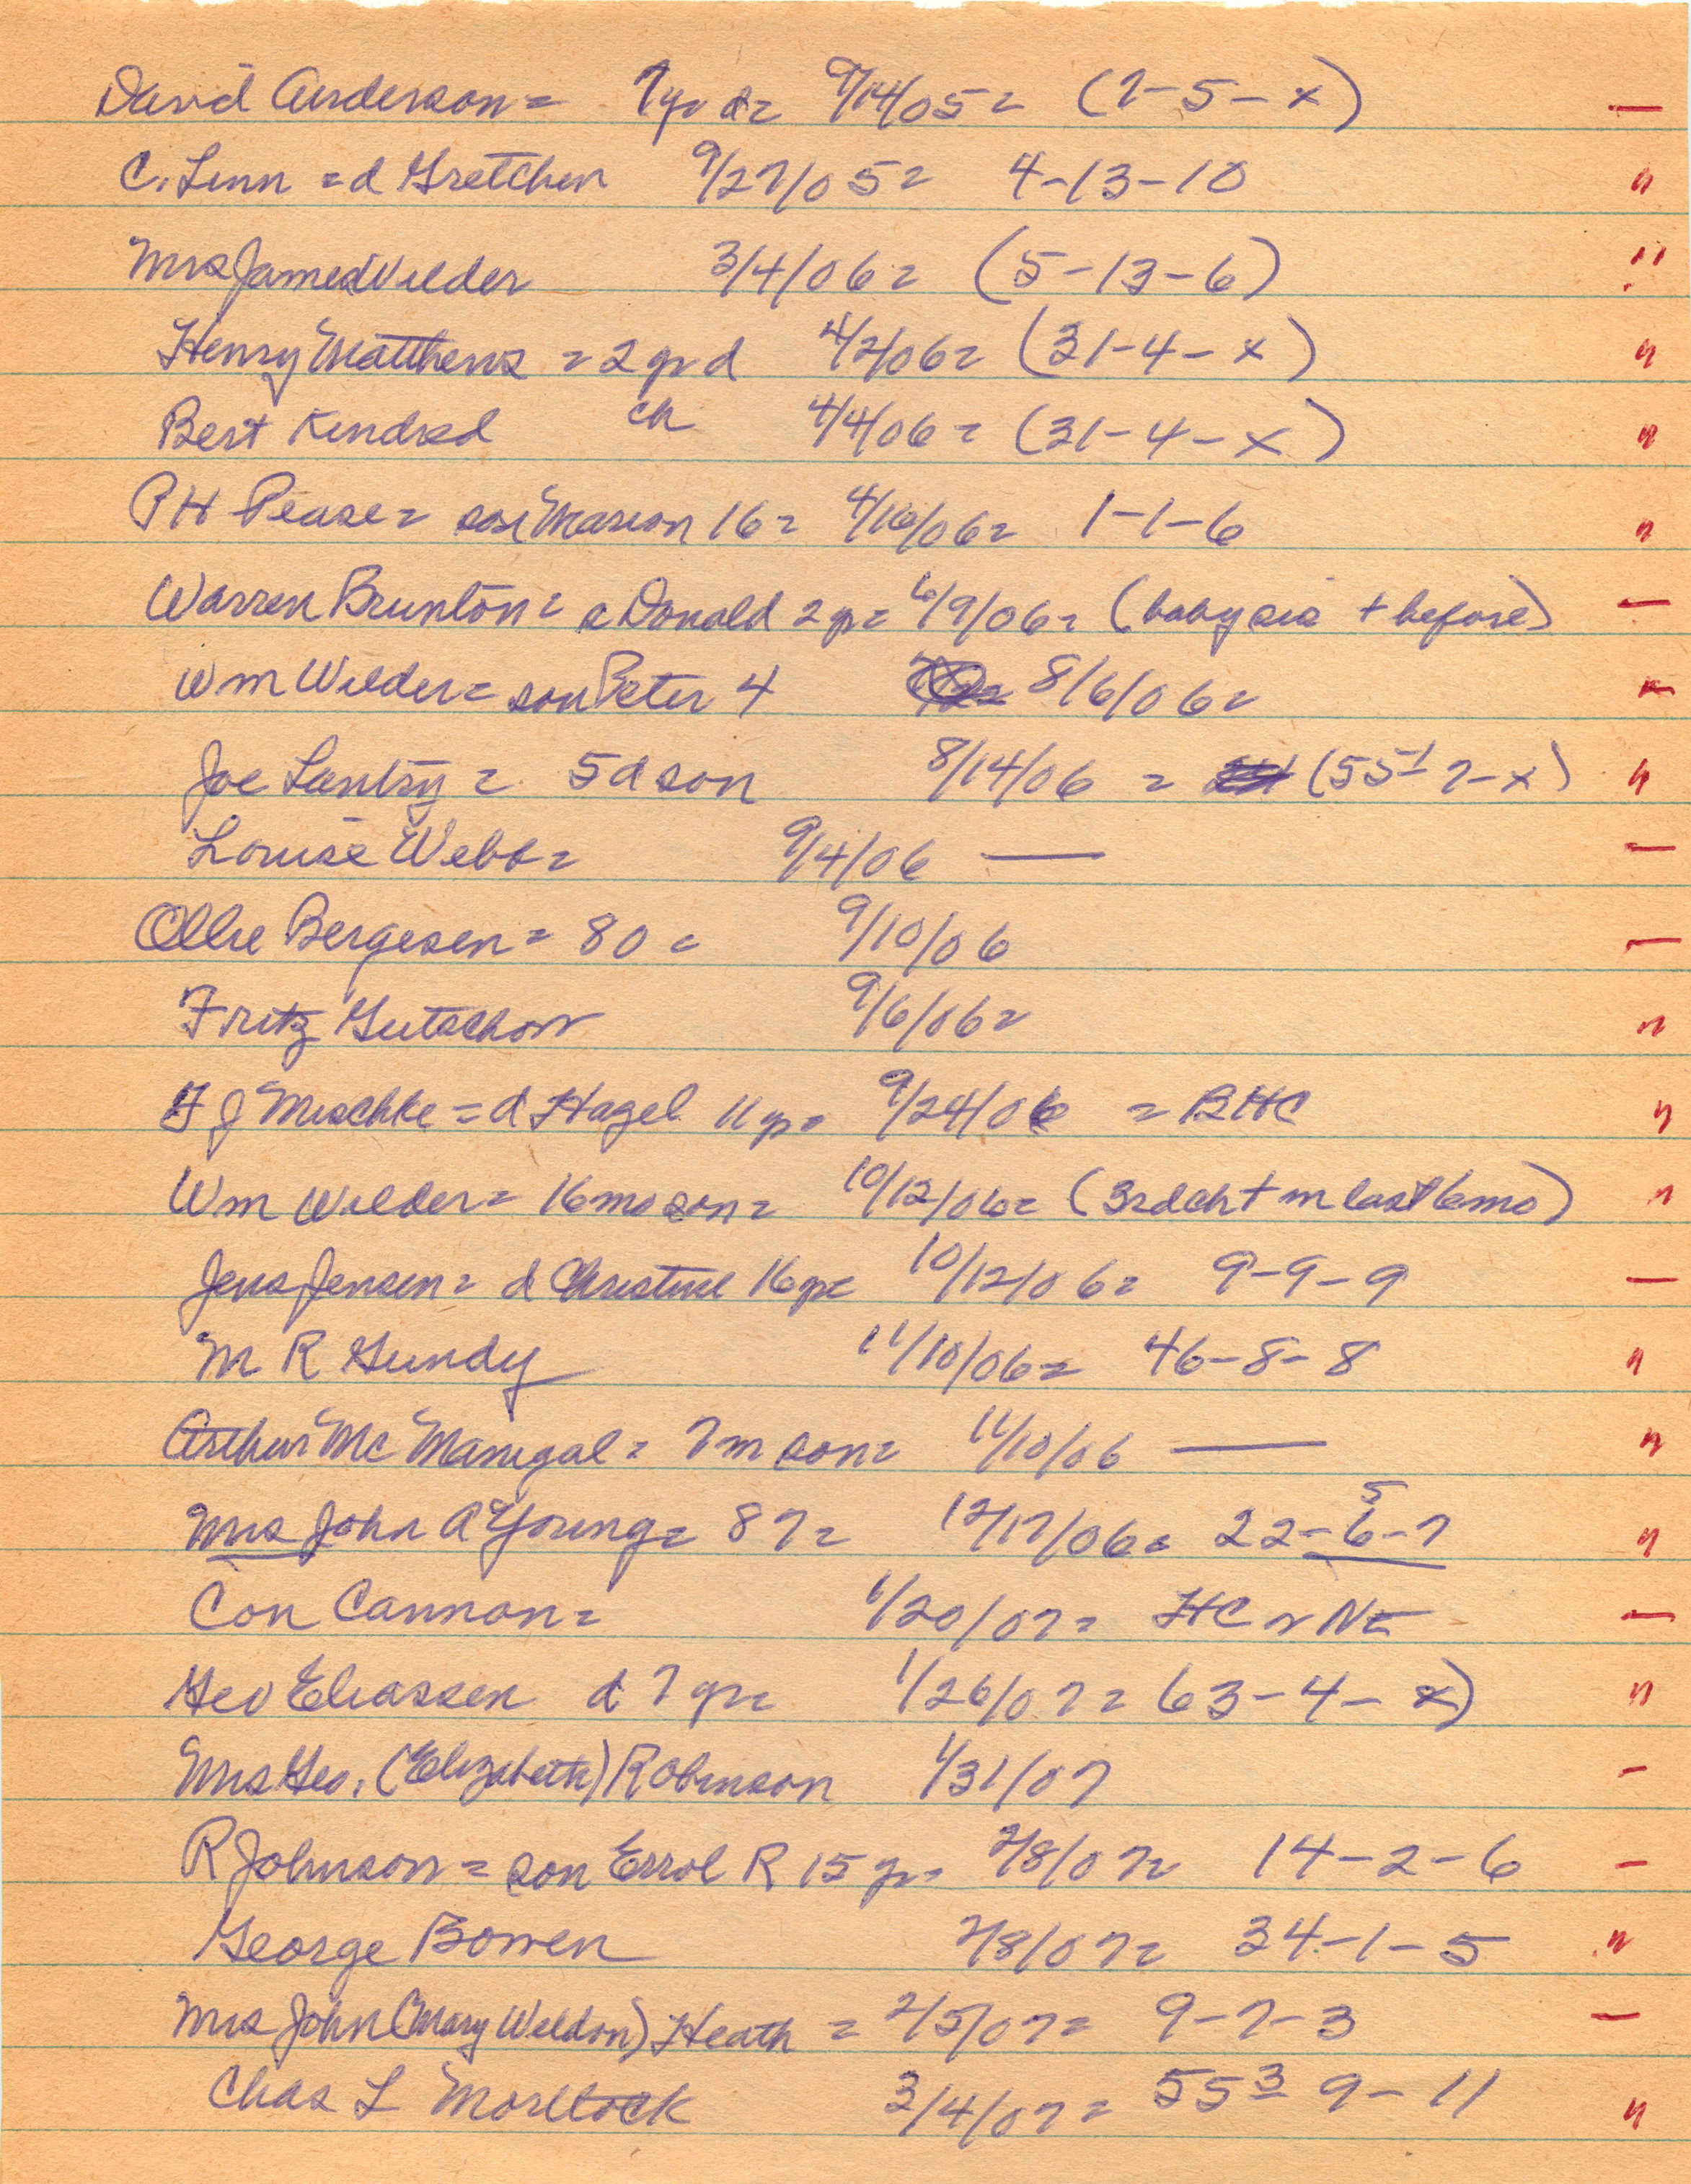 David Anderson = 7 yr d = 9/14/05 = (7-5-x) —
C. Linn = d Gretchen 9/27/05 = 4-13-10 "
Mrs James Wilder 3/4/06 = (5-13-6) "
Henry Matthews = 2 yr d 4/2/06 = (31-4-x) "
Bert Kindred ch 4/4/06 = (31-4-x) "
P H Pease = son Marion 16 = 4/16/06 = 1-1-6 "
Warren Brunton = s Donald 2 yr = 6/9/06 = (baby sis + before) —
Wm Wilder = son Peter 4 8/6/06 = "
Joe Lantry = 5 d son 8/14/06 = (55-1 7-x) "
Louise Webb = 9/4/06 — —
Ollie Bergesen = 80 = 9/10/06 —
Fritz Gutschow 9/6/06 = "
F J Mischke = d Hazel 11 yr = 9/24/06 = BHC "
Wm Wilder = 16 mo son = 10/12/06 = (3rd ch + in last 6 mo) "
Jens Jensen = d Christine 16 yr = 10/12/06 = 9-9-9 —
M R Gundy 11/10/06 = 46-8-8 "
Arthur Mc Manigal = 7 m son = 11/10/06 — "
Mrs John A Young = 87 = 12/17/06 = 22-6-7 5 "
Con Cannon = 1/20/07 = HC or NE —
Geo Eliassen d 7 yr = 1/26/07 = 63-4-x) "
Mrs Geo. (Elizabeth) Robinson 1/31/07 —
R Johnson = son Errol R 15 yr = 2/8/07 = 14-2-6 —
George Bowen 2/8/07 = 34-1-5 "
Mrs John (Mary Weldon) Heath = 2/5/07 = 9-7-3 —
Chas L Morltock 3/4/07 = 55 3 9-11 "